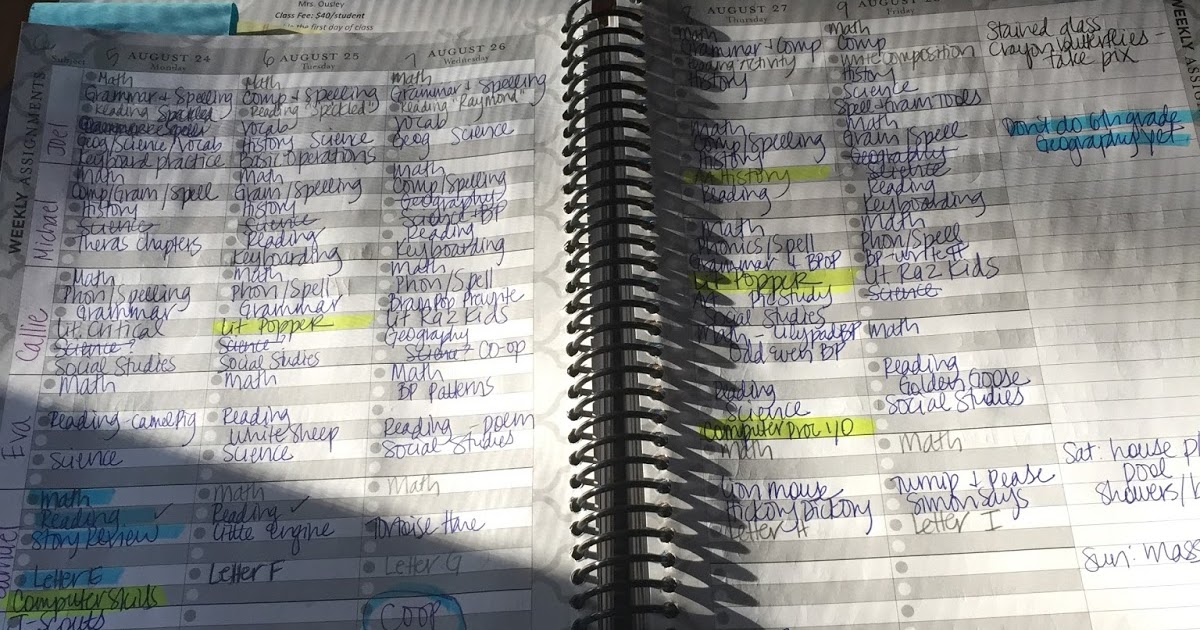 Mrs. Ousley
Class Fee: $40/student
the first day of class
WEEKLY ASSIGNMENTS
Subject
5 AUGUST 24
Monday
6 AUGUST 25
Tuesday
7 AUGUST 26
Wednesday
Joel
Math
Grammar + Spelling
Reading Speckled
Geog/Science/Vocab
Keyboard practice
Math
Comp + Spelling
Reading "Speckled"
Vocab
History Science
Basic Operations
Math
Grammar + Spelling
Reading "Raymond"
Vocab
Geog Science
Michael
Math
Comp/Gram/Spell
History
Science
Theras chapters
Math
Gram/Spelling
History
Science
Reading
Keyboarding
Math
Comp/Spelling
Geography
Science + BP
Reading
Keyboarding
Callie
Math
Phon/Spelling
Grammar
Lit Critical
Science?
Social Studies
Math
Phon/Spell
Grammar
Lit Popper
Science
Social Studies
Math
Phon/Spell
Lit Raz Kids
Geography
Science? CO-OP
Eva
Math
Reading
Science
Math
Reading
White Sheep
Science
Math
BP Patterns
Reading - poem
Social Studies
Math
Reading ✓
Story Review
Letter E
Computer Skills
Math
Reading ✓
Little Engine
Letter F
Math
Tortoise Hare
Letter G
COOP
8 AUGUST 27
Thursday
9
Friday
WEEKLY
Math
Grammar + Comp
History
Math
Comp
Write Composition
History
Science
Spell + Gram Tools
Math
Comp/Spelling
History
Art History
Reading
Math
Gram/Spell
Geography
Science
Reading
Keyboarding
Math
Phonics/Spell
Grammar + BPOP
Lit Popper
Art Pic Study
Social Studies
Math
Phon/Spell
BP-write #
Lit Raz Kids
Science
Math
Odd Even BP
Reading
Science
Computer Proc I/O
Math
Reading
Golden Goose
Social Studies
Math
Lion Mouse
Hickory Dickory
Letter H
Math
Turnip + Pease
Simon Says
Letter I
Stained glass
Crayon butterflies -
take pix
Don't do 6th grade
Geography yet
Sat: house
pool
Showers/
Sun: Mass